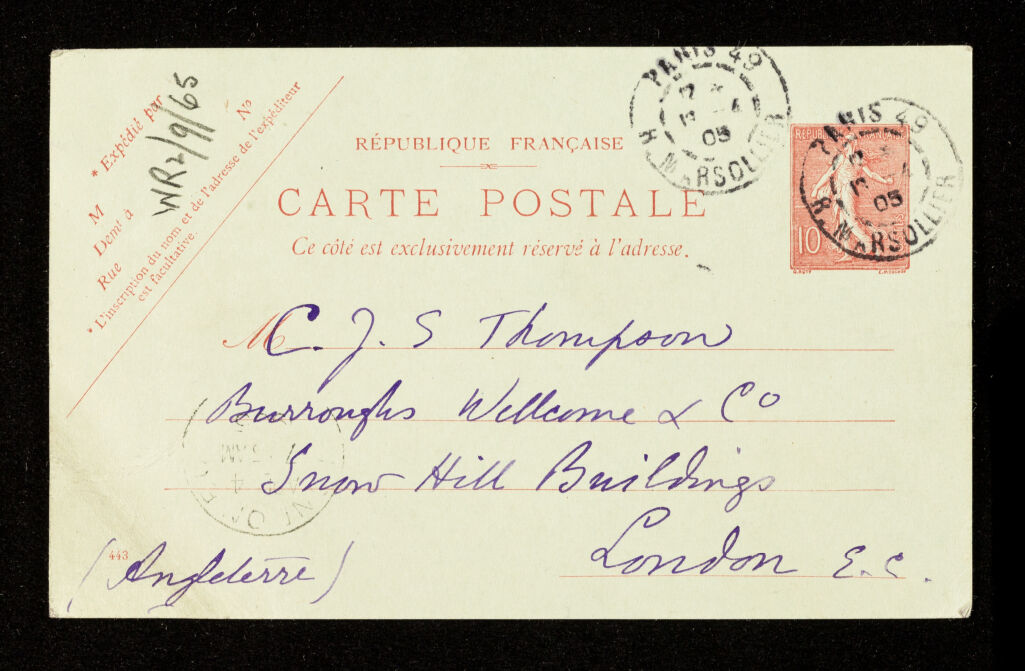 * Expédié par
M
Demt à
Rue No
* L'inscription du nom et de l'adresse de l'expéditeur
est facultative.
WR2/9/65
RÉPUBLIQUE FRANÇAISE
CARTE POSTALE
Ce côté est exclusivement réservé à l'adresse.
PARIS 49
05
R. MARSOLLIER
RÉPUBLIQUE
10
PARIS 49
05
R. MARSOLLIER
M C. J. S Thompson
Burroughs Wellcome & Co
Snow Hill Buildings
London E. C.
443
(Angleterre)
AM
4